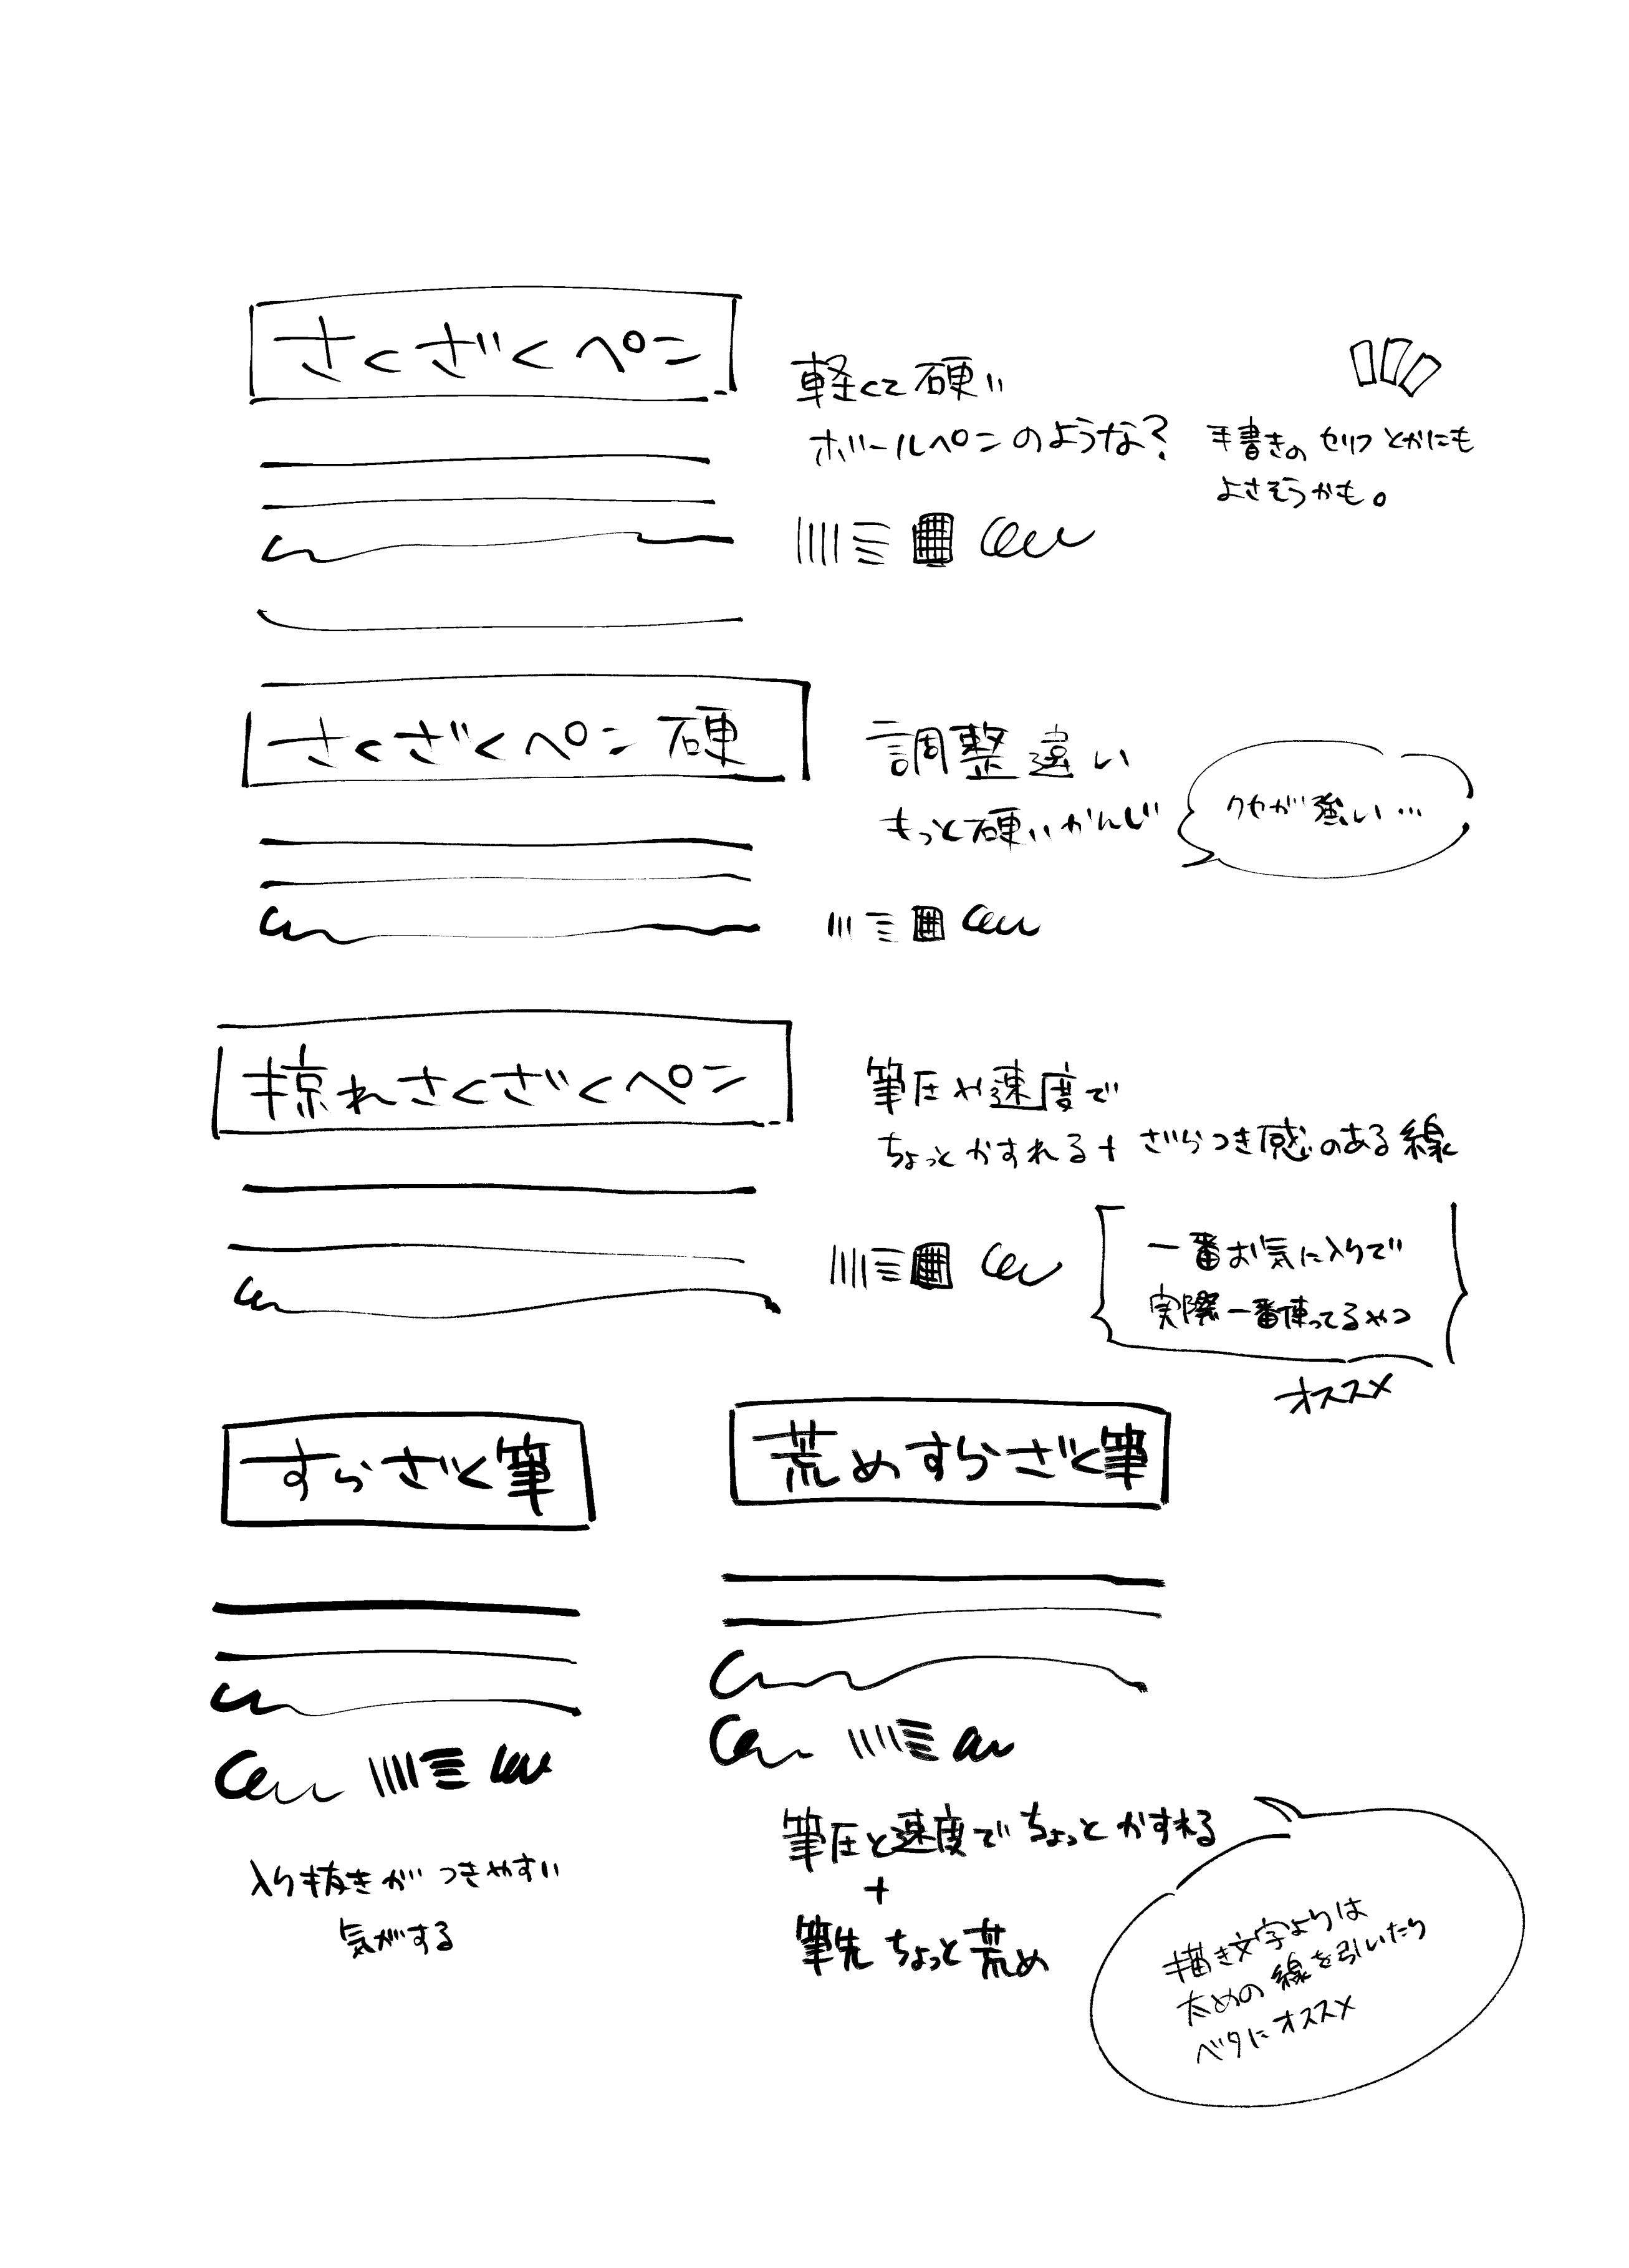 さくざくペン
軽くて硬い
ボールペンのような?
手書きのセリフとかにも
よさそうかも。
さくざくペン硬
調整違い
もっと硬いかんじ
クセが強い…
掠れさくざくペン
筆圧や速度で
ちょっとかすれる+ざらつき感のある線
一番お気に入りで
実際一番使ってるやつ
オススメ
すらざく筆
入り抜きがつきやすい
気がする
荒めすらざく筆
筆圧と速度でちょっとかすれる
+
筆先ちょっと荒め
描き文字よりは
太めの線を引いたり
ベタにオススメ